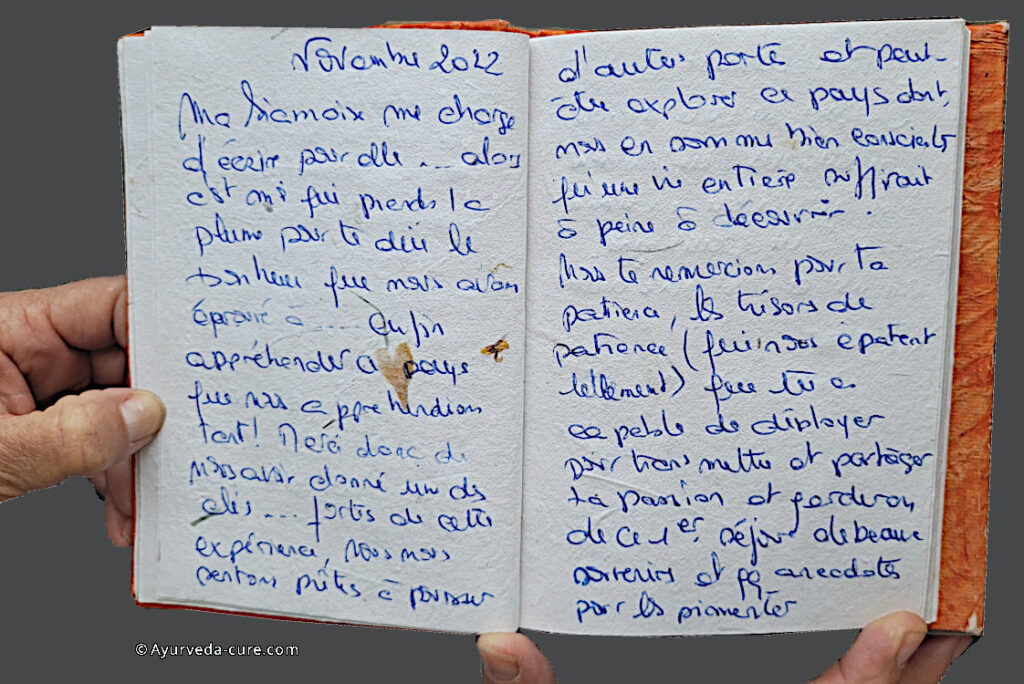 Novembre 2022
Ma siamoise me charge
d'écrire pour elle ... alors
c'est moi qui prends la
plume pour te dire le
bonheur que nous avons
éprouvé à .... enfin
appréhender ce pays
que nous appréhendions
tant! Merci donc de
nous avoir donné une des
clés ... fortes de cette
expérience, nous nous
sentons prêtes à pousser
d'autres porte et peut-
être explorer ce pays dont,
nous en sommes bien conscients
qu'une vie entière suffirait
à peine à découvrir.
Nous te remercions pour ta
patience, les trésors de
patience (qui nous épatent
tellement) que tu es
capable de déployer
pour transmettre et partager
ta passion et garderons
de ce 1er séjour de beaux
souvenirs et qq anecdotes
pour les pimenter
© Ayurveda-cure.com